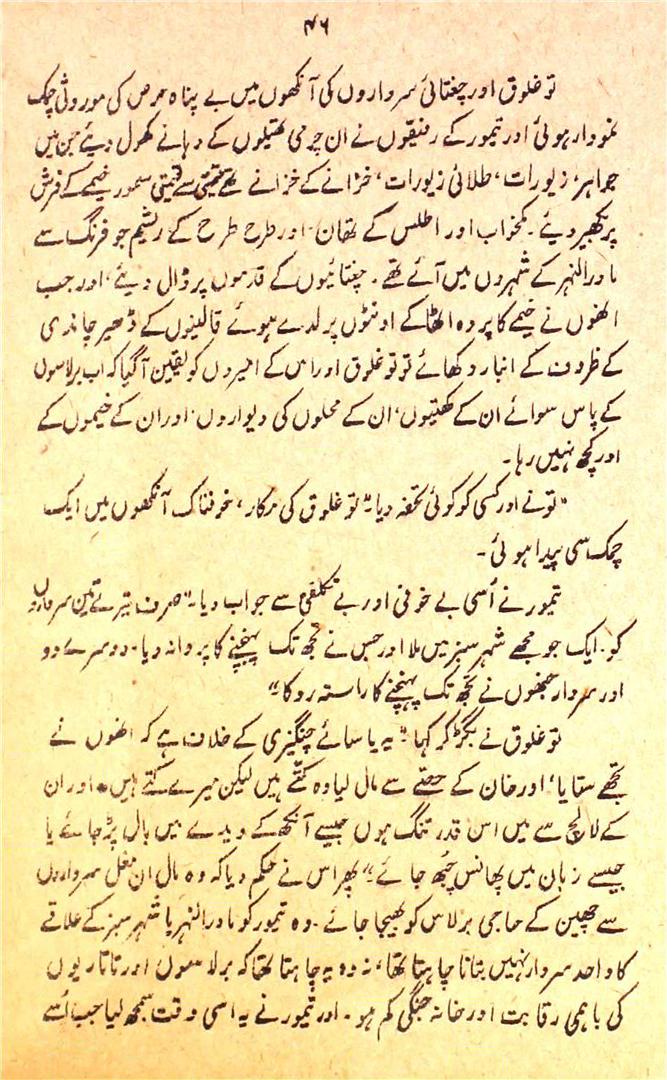 ۴۶
تو غلوق اور چغتائی سرداروں کی آنکھوں میں بے پناہ حرص کی موروثی چمک
نمودار ہوئی اور تیمور کے رفیقوں نے ان چرمی تھیلوں کے دہانے کھول دیئے جن میں
جواہر، زیورات، طلائی زیورات، خزانے کے خزانے تھے قیمتی سے قیمتی سمور خیمے کے فرش
پر بکھیر دیئے۔ کمخواب اور اطلس کے تھان۔ اور طرح طرح کے ریشم جو فرنگ سے
ماورالنہر کے شہروں میں آئے تھے۔ چغتائیوں کے قدموں پر ڈال دیئے، اور جب
انھوں نے خیمے کا پردہ اٹھا کے اونٹوں پر لدے ہوئے قالینوں کے ڈھیر چاندی
کے ظروف کے انبار دکھائے تو تو غلوق اور اس کے امیروں کو یقین آگیا کہ اب برلاسوں
کے پاس سوائے ان کے کھیتیوں، ان کے محلوں کی دیواروں، اور ان کے خیموں کے
اور کچھ نہیں رہا۔
"تو نے اور کسی کو کوئی تحفہ دیا۔" تو غلوق کی مکار، خوفناک آنکھوں میں ایک
چمک سی پیدا ہوئی۔
تیمور نے اُسی بے خوفی اور بے تکلفی سے جواب دیا۔ "صرف تیرے تین سرداروں
کو۔ ایک جو مجھے شہر سبز میں ملا اور جس نے تجھ تک پہنچنے کا پروانہ دیا۔ دوسرے دو
اور سردار جنھوں نے تجھ تک پہنچنے کا راستہ روکا۔"
تو غلوق نے بگڑ کر کہا۔ "یہ یاسائے چنگیزی کے خلاف ہے کہ انھوں نے
تجھے ستایا، اور خان کے حصّے سے مال لیا وہ کتّے ہیں لیکن میرے کتّے ہیں۔ اور ان
کے لالچ سے میں اس قدر تنگ ہوں جیسے آنکھ کے دیدے میں بال پڑ جائے یا
جیسے زبان میں پھانس چبھ جائے۔" پھر اس نے حکم دیا کہ وہ مال ان مغل سرداروں
سے چھین کے حاجی برلاس کو بھیجا جائے۔ وہ تیمور کو ماورالنہر یا شہر سبز کے علاقے
کا واحد سردار نہیں بنانا چاہتا تھا، نہ وہ یہ چاہتا تھا کہ برلاسوں اور تاتاریوں
کی باہمی رقابت اور خانہ جنگی کم ہو۔ اور تیمور نے یہ اسی وقت سمجھ لیا جب اُسے